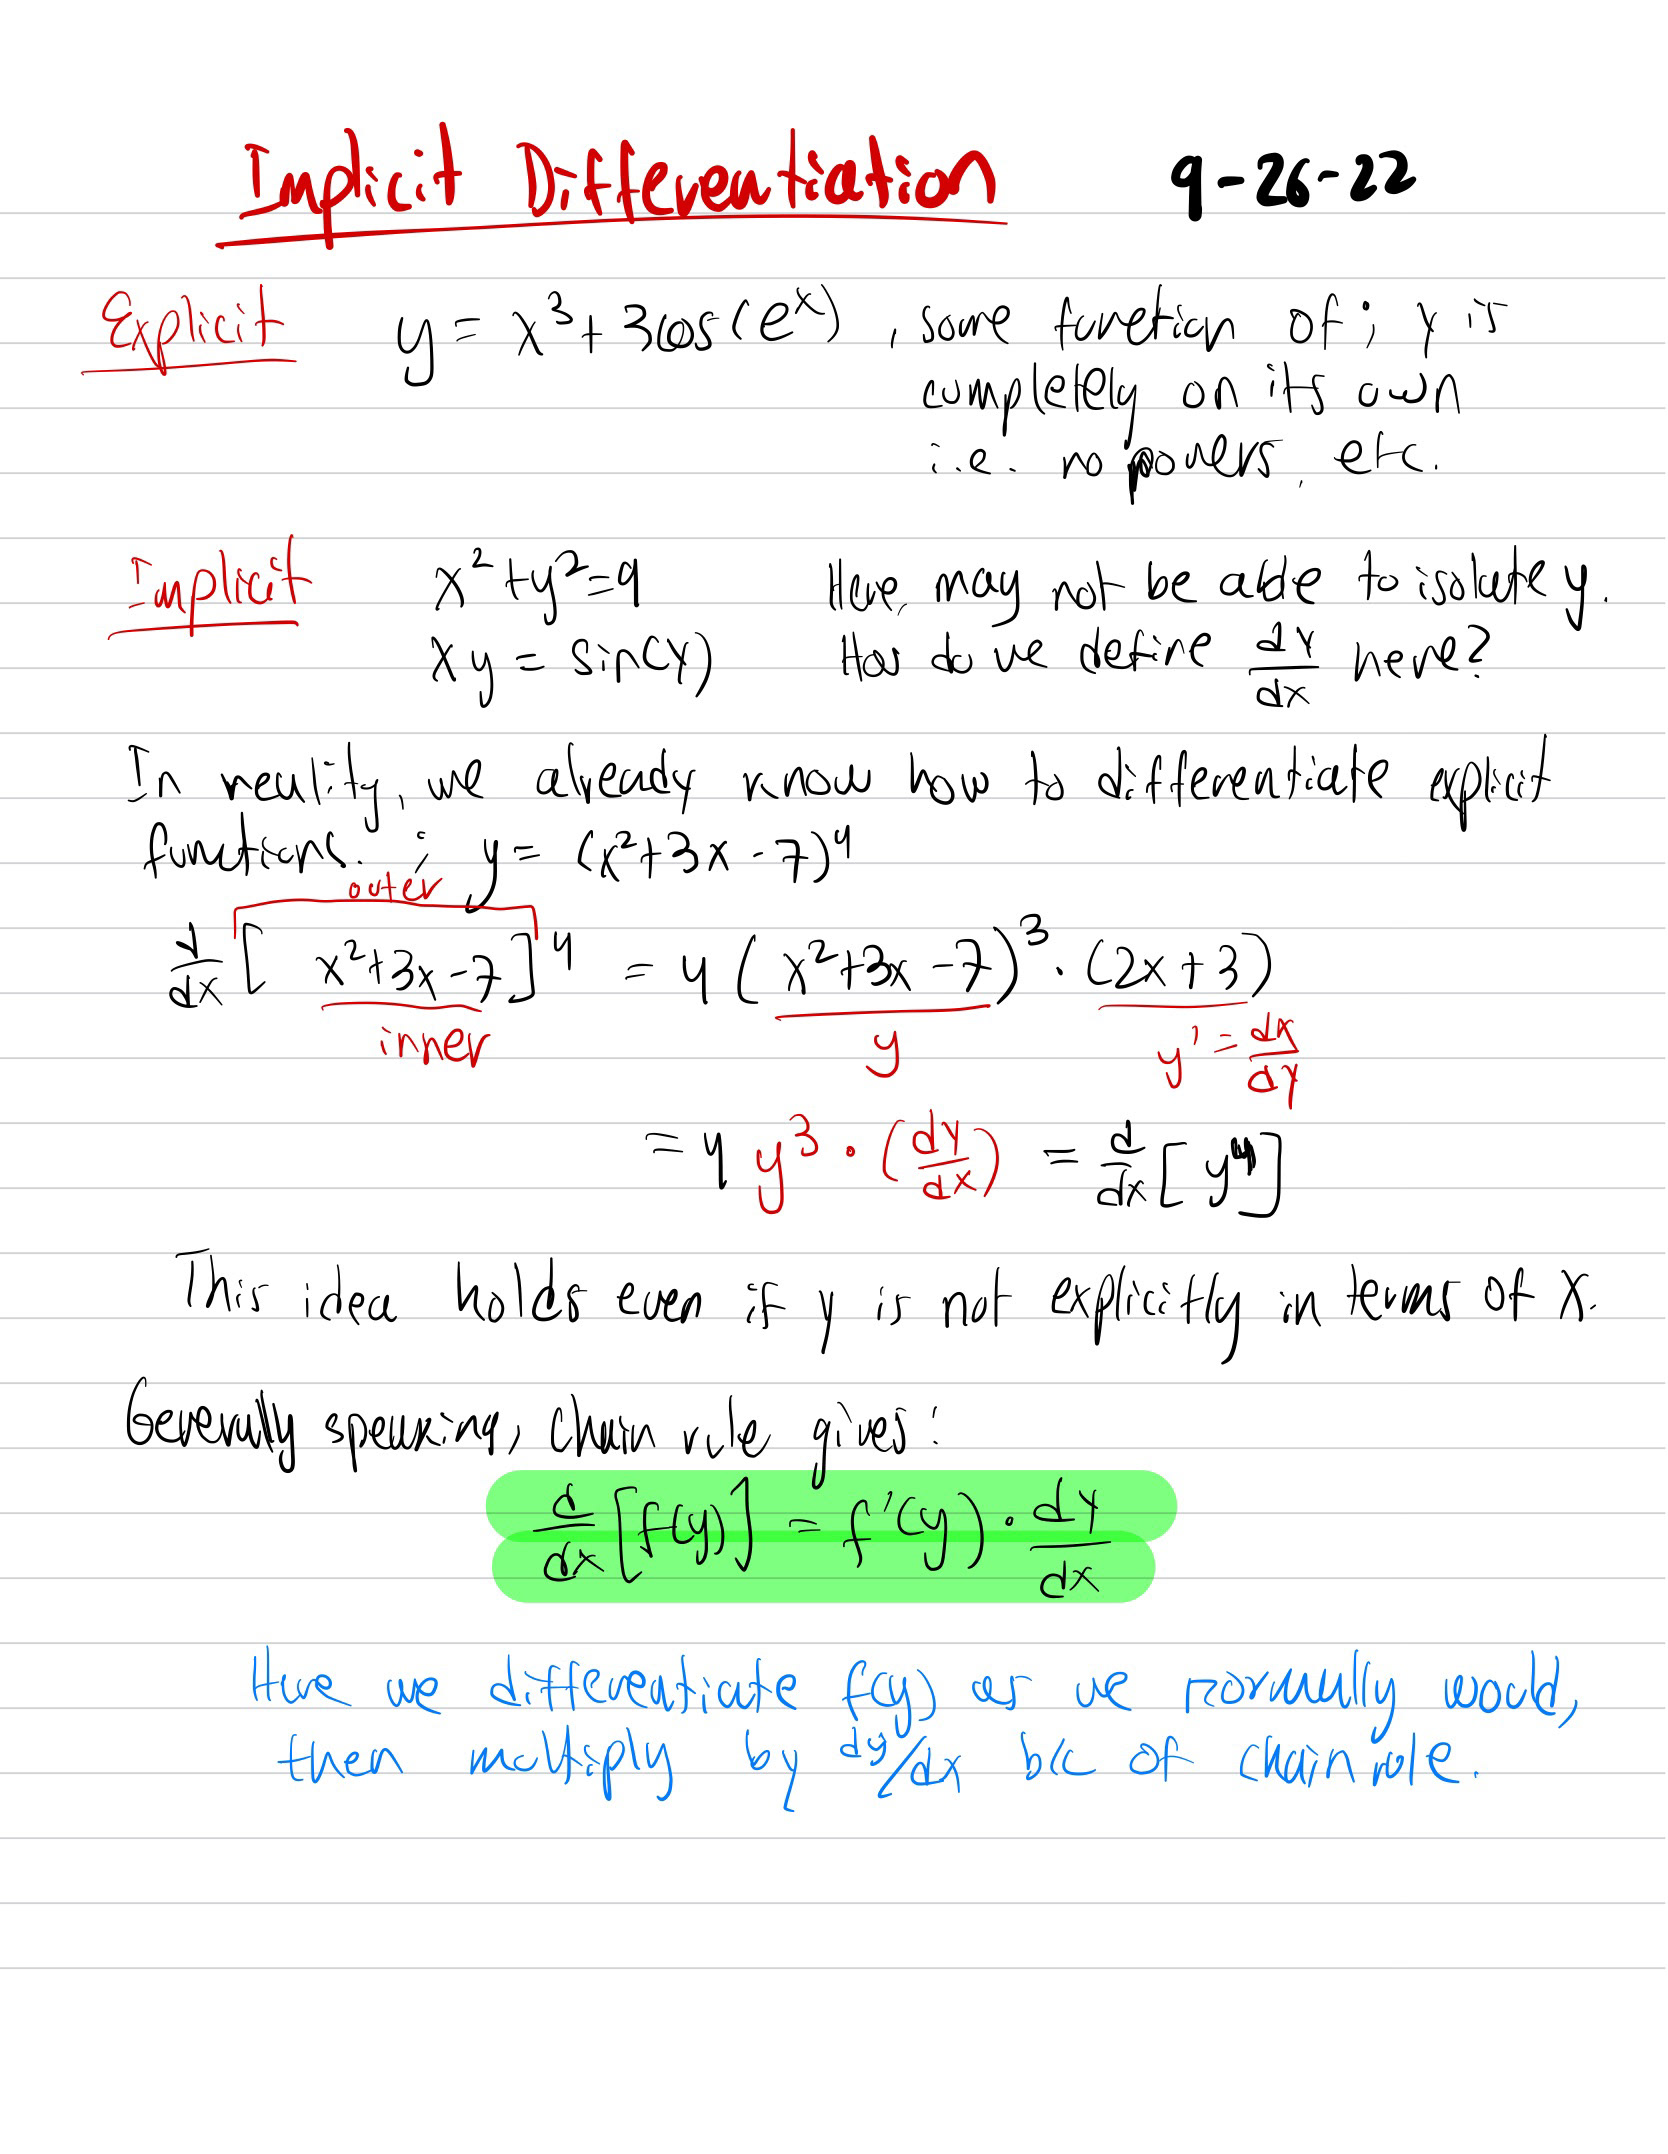 Implicit Differentiation 9-26-22
Explicit y = x³ + 3cos(eˣ) , some function of ; y is
completely on its own
i.e. no powers, etc.
Implicit x² + y² = 9 Here, may not be able to isolate y.
xy = sin(y) How do we define dy/dx here?
In reality, we already know how to differentiate explicit
functions. ; y = (x²+3x-7)⁴
outer
d/dx [x²+3x-7]⁴ = 4(x²+3x-7)³ · (2x+3)
inner y y' = dx/dy
= 4 y³ · (dy/dx) = d/dx [y⁴]
This idea holds even if y is not explicitly in terms of x.
Generally speaking, chain rule gives:
d/dx [f(y)] = f'(y) · dy/dx
Here we differentiate f(y) as we normally would,
then multiply by dy/dx b/c of chain rule.